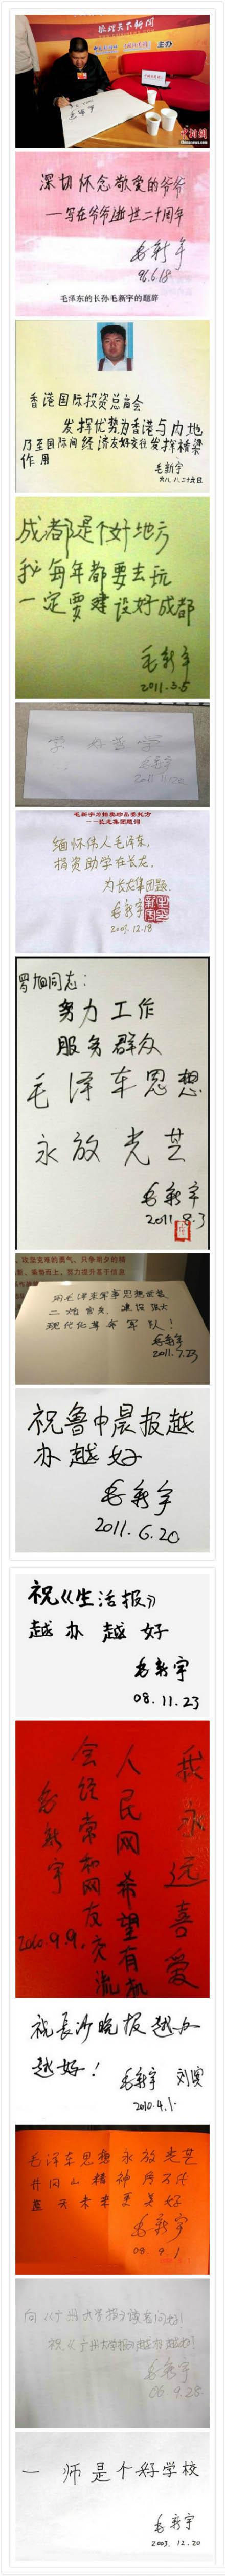 旅理天下新闻
主办
毛新宇
深切怀念敬爱的爷爷
—写在爷爷逝世二十周年
毛新宇
96.6.18
毛泽东的长孙毛新宇的题辞
香港国际投资总商会
发挥优势为香港与内地
乃至国际间经济友好交往发挥桥梁
作用
毛新宇
成都是个好地方
我每年都要去玩
一定要建设好成都
毛新宇
2011.3.5
学好医学
毛新宇
毛新宇为拍卖珍品委托方
——长龙集团题词
缅怀伟人毛泽东,
捐资助学在长龙.
为长龙集团题.
毛新宇
2003.12.18
罗旭同志:
努力工作
服务群众
毛泽东思想
永放光芒
毛新宇
2011.8.3
用毛泽东军事思想武装
二炮官兵,建设强大
现代化革命军队!
毛新宇
2011.7.23
祝鲁中晨报越
办越好
毛新宇
2011.6.20
祝《生活报》
越办越好
毛新宇
08.11.23
我永远喜爱
人民网希望有机
会经常和网友交流
毛新宇
2010.9.9.
祝长沙晚报越办
越好!
毛新宇 刘滨
2010.4.1.
毛泽东思想永放光芒
井冈山精神月万代
蓝天未来更美好
毛新宇
08.9.1
向《广州大学报》读者问好!
祝《广州大学报》越办越好!
毛新宇
06.9.28
一师是个好学校
毛新宇
2003.12.20